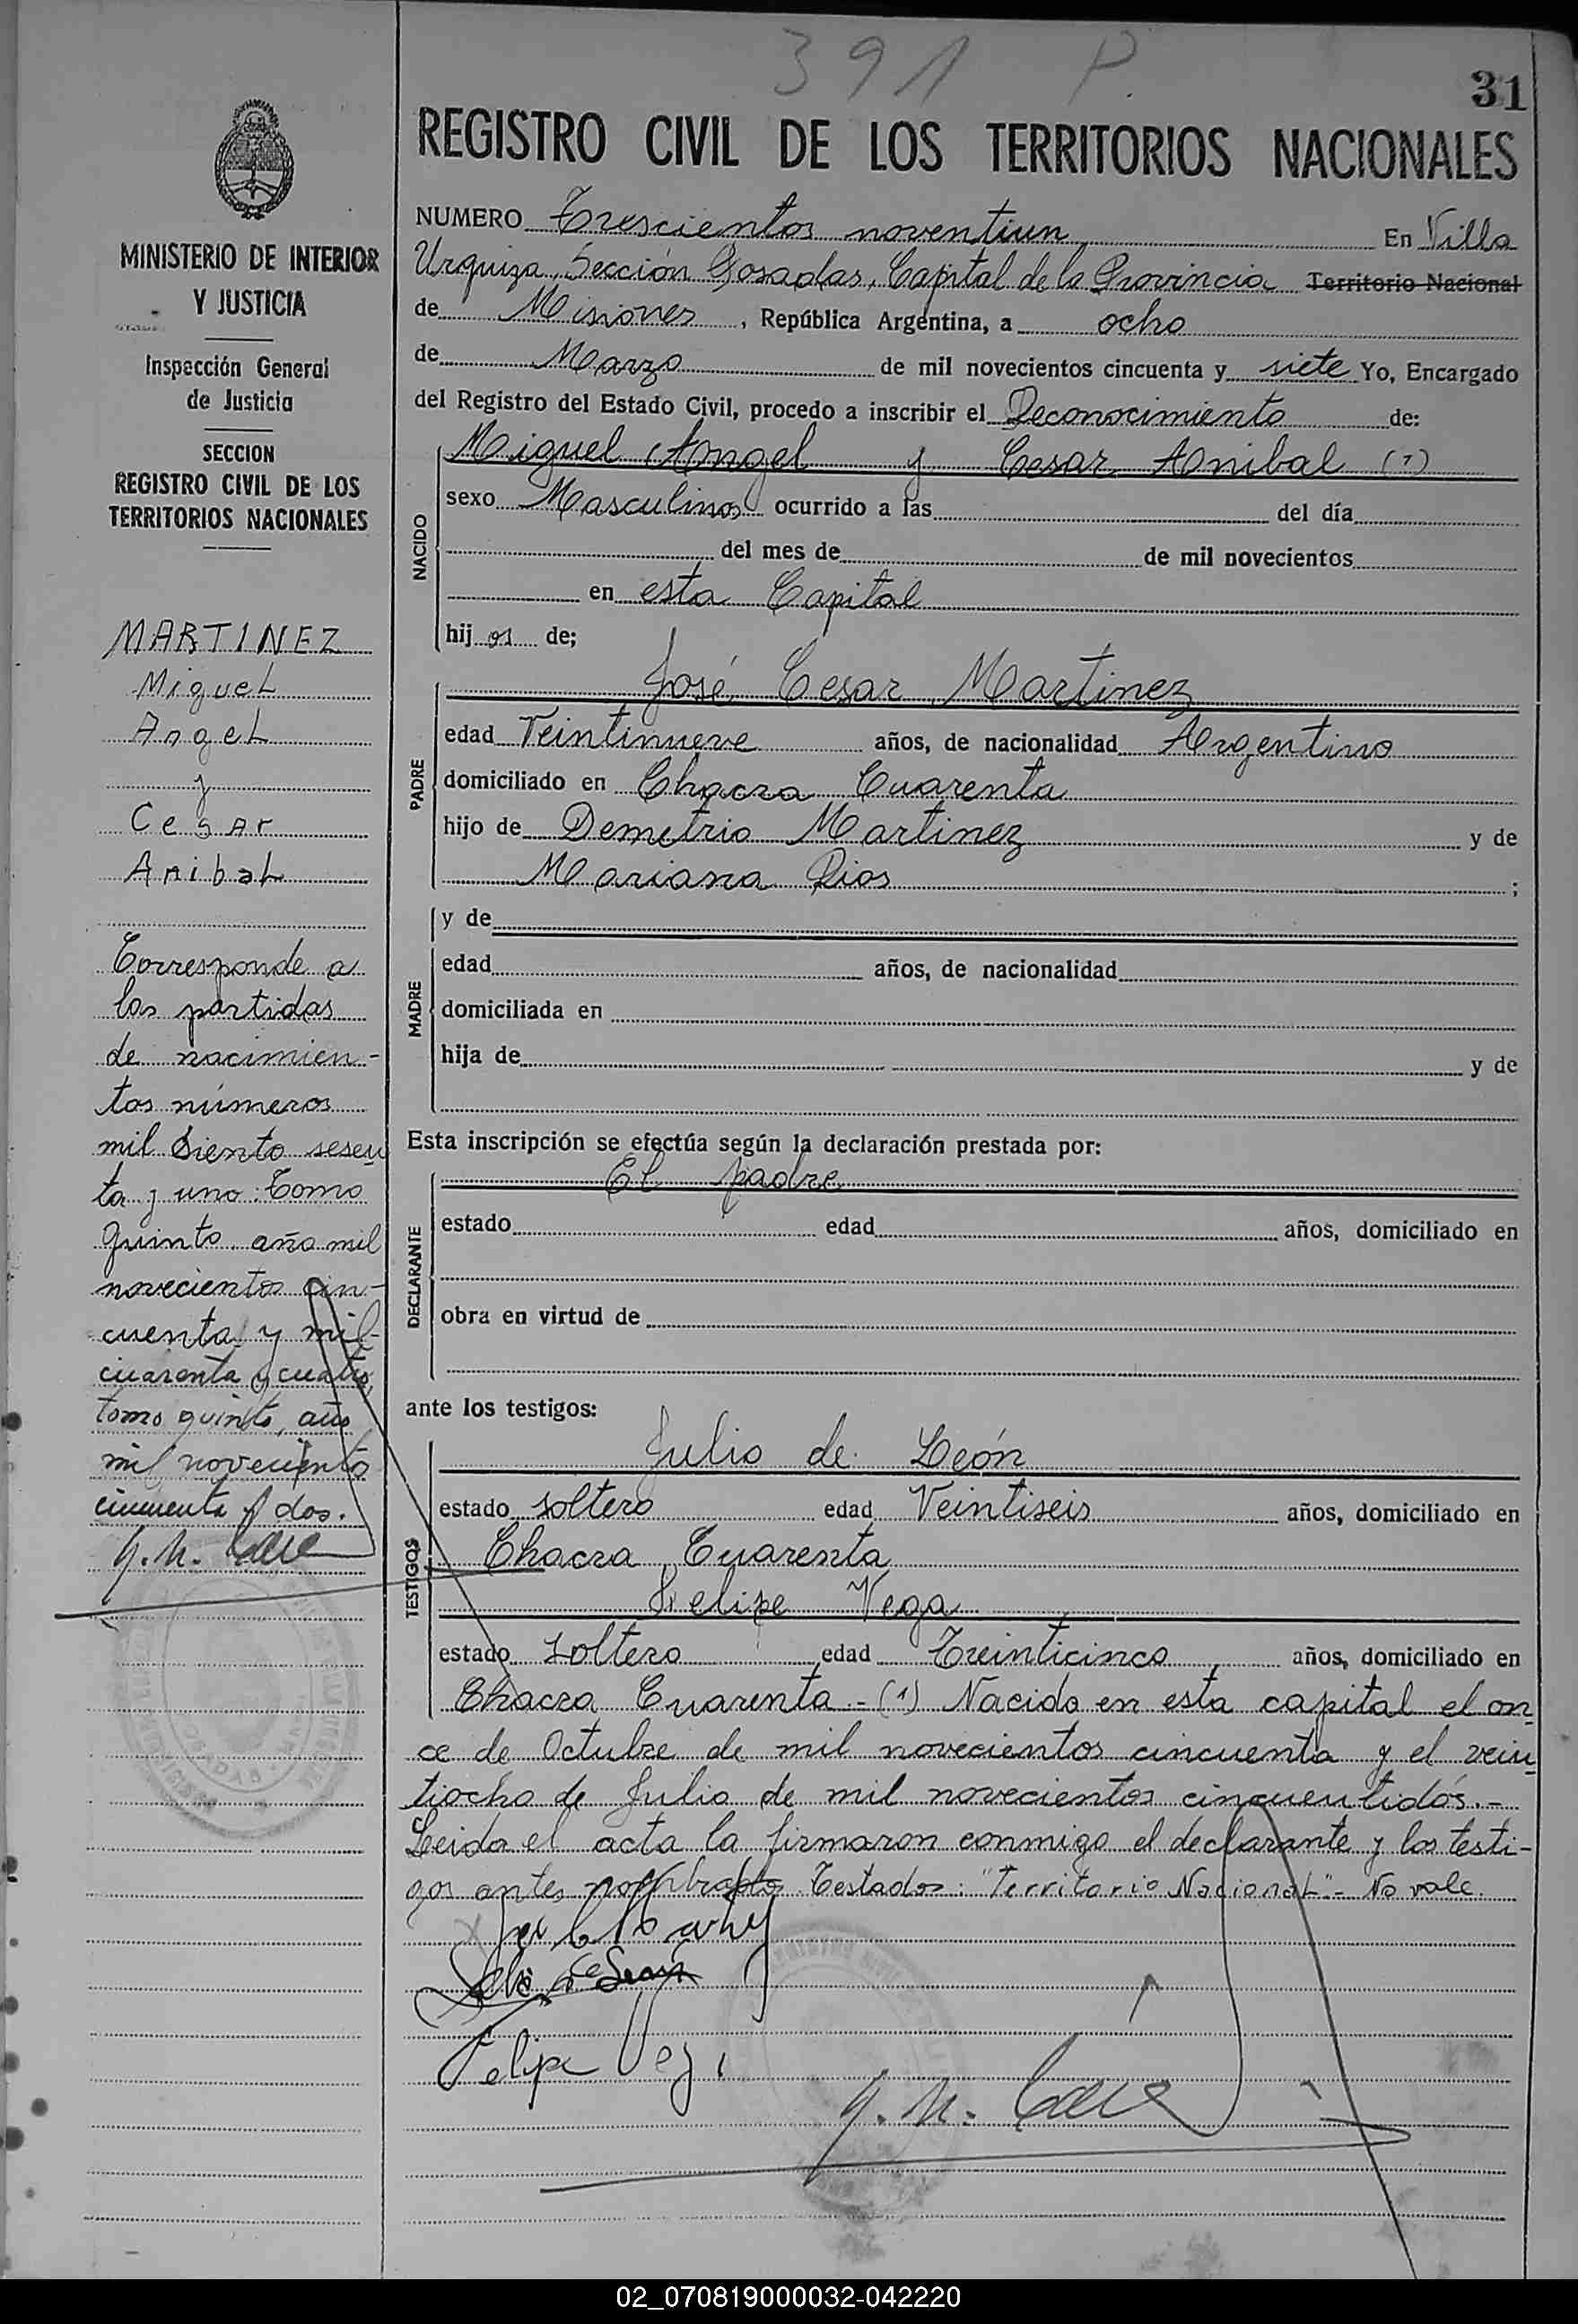 391 P.
31
REGISTRO CIVIL DE LOS TERRITORIOS NACIONALES
MINISTERIO DE INTERIOR
Y JUSTICIA
Inspección General
de Justicia
SECCION
REGISTRO CIVIL DE LOS
TERRITORIOS NACIONALES
MARTINEZ
Miguel
Angel
y
Cesar
Anibal
Corresponde a
las partidas
de nacimien-
tos números
mil siento sesen
ta y uno. Tomo
quinto año mil
novecientos cin-
cuenta y mil
cuarenta y cuatro,
tomo quinto, año
mil novecientos
cincuenta y dos.
NUMERO Trescientos noventiun En Villa
Urquiza, Sección Posadas, Capital de la Provincia Territorio Nacional
de Misiones, República Argentina, a ocho
de Marzo de mil novecientos cincuenta y siete Yo, Encargado
del Registro del Estado Civil, procedo a inscribir el Reconocimiento de:
NACIDO
Miguel Angel y Cesar Anibal (1)
sexo Masculinos ocurrido a las del día
del mes de de mil novecientos
en esta Capital
hij os de;
PADRE
José Cesar Martinez
edad Veintinueve años, de nacionalidad Argentino
domiciliado en Chacra Cuarenta
hijo de Demetrio Martinez y de
Mariana Rios ;
MADRE
y de
edad años, de nacionalidad
domiciliada en
hija de y de
Esta inscripción se efectúa según la declaración prestada por:
DECLARANTE
El padre
estado edad años, domiciliado en
obra en virtud de
ante los testigos:
TESTIGOS
Julio de León
estado soltero edad Veintiseis años, domiciliado en
Chacra Cuarenta
Felipe Vega
estado soltero edad Treinticinco años, domiciliado en
Chacra Cuarenta.- (1) Nacido en esta capital el on
ce de Octubre de mil novecientos cincuenta y el vein
tiocho de Julio de mil novecientos cincuentidós.-
Leida el acta la firmaron conmigo el declarante y los testi-
gos antes nombrados Testados: "Territorio Nacional"- No vale.
Felipe Vega
02_070819000032-042220